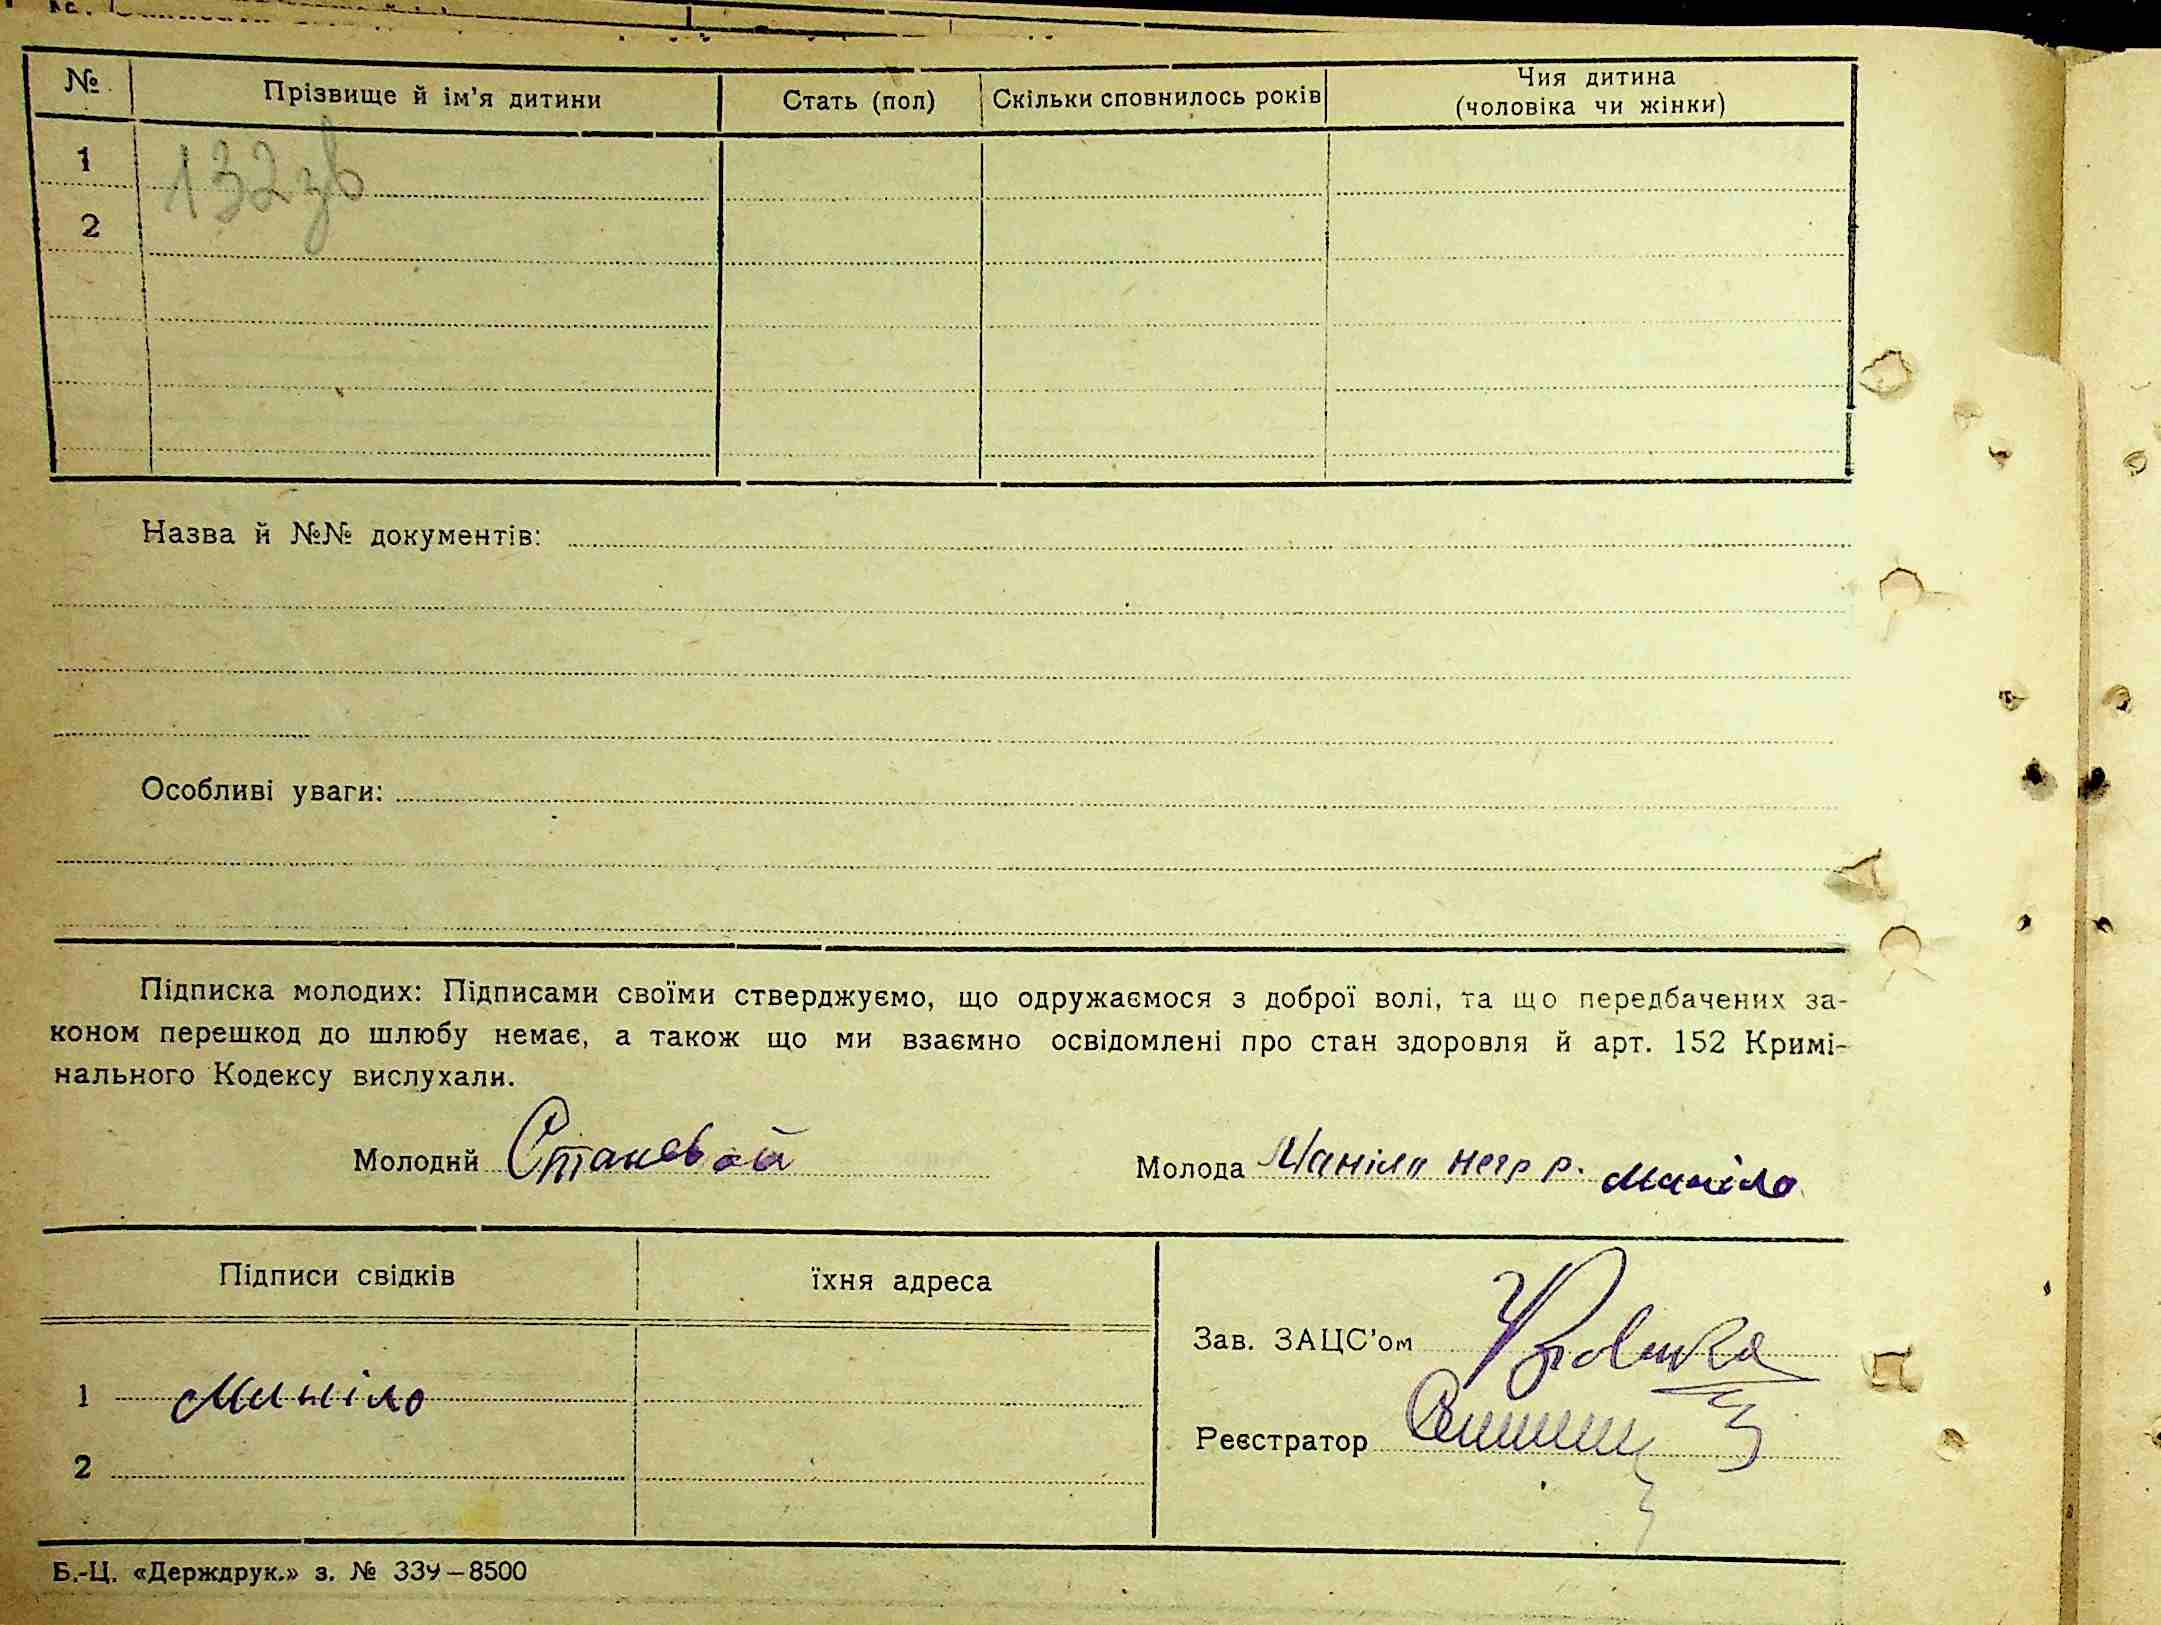 № Прізвище й ім'я дитини Стать (пол) Скільки сповнилось років Чия дитина (чоловіка чи жінки)
1 132 зв
2
Назва й №№ документів:
Особливі уваги:
Підписка молодих: Підписами своїми стверджуємо, що одружаємося з доброї волі, та що передбачених за-
коном перешкод до шлюбу немає, а також що ми взаємно освідомлені про стан здоровля й арт. 152 Кримі-
нального Кодексу вислухали.
Молодий Становой Молода Маніло негр р. Маніло
Підписи свідків їхня адреса
Зав. ЗАЦС'ом
1 Маніло
Реєстратор
2
Б.-Ц. «Держдрук.» з. № 339—8500